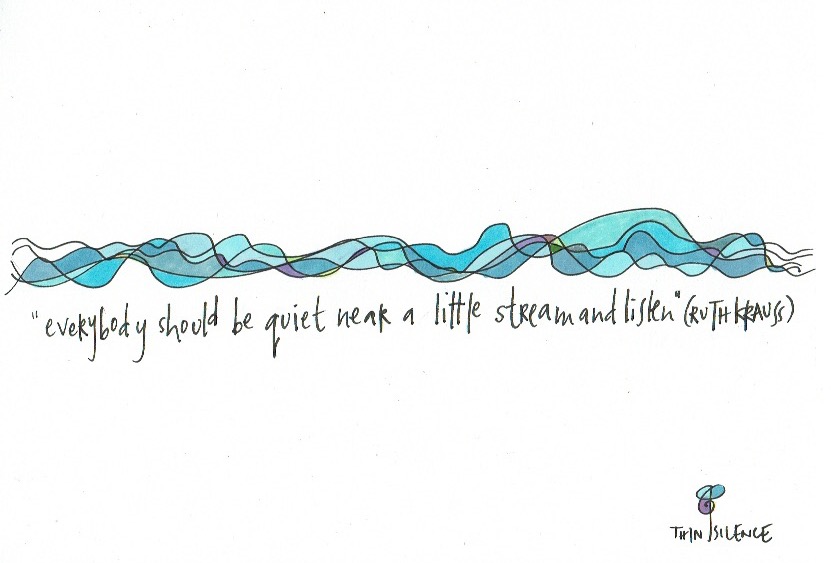 "everybody should be quiet near a little stream and listen" (RUTH KRAUSS)
THIN SILENCE